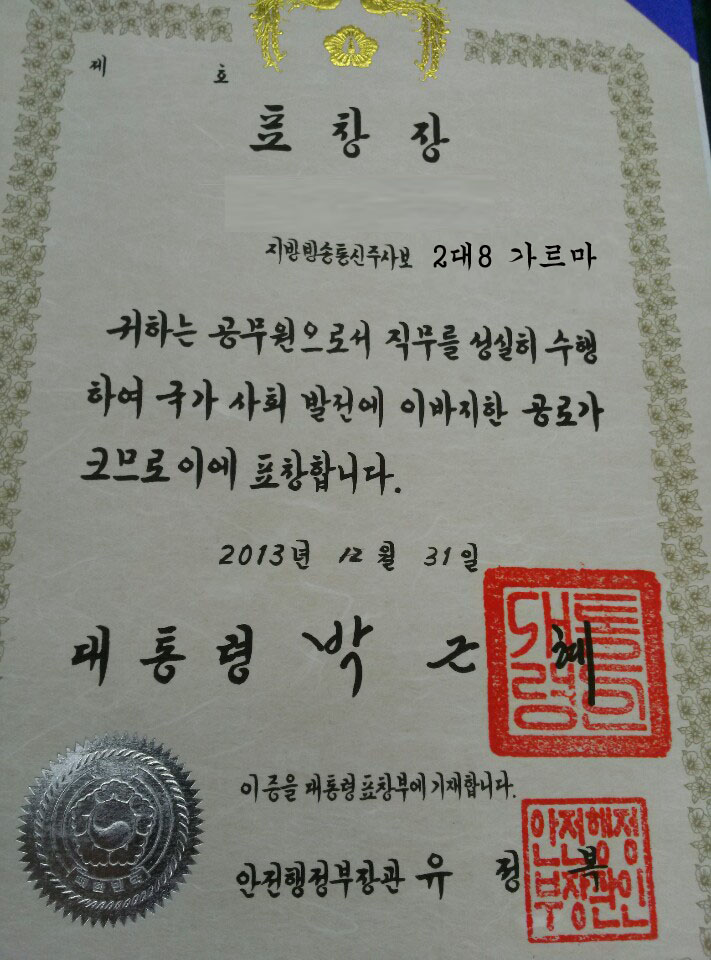 제 호
표 창 장
지방방송통신주사보 2대8 가르마
귀하는 공무원으로서 직무를 성실히 수행
하여 국가 사회 발전에 이바지한 공로가
크므로 이에 표창합니다.
2013년 12월 31일
대통령 박근혜
대통령인
이 증을 대통령표창부에 기재합니다.
안전행정부장관 유정복
안전행정
부장관인
대한민국